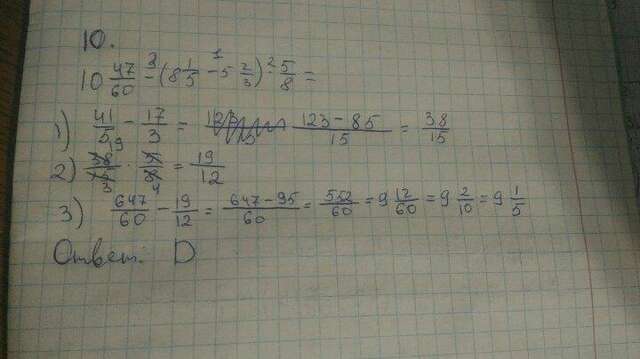 10.
10 47/60 - (8 1/5 - 5 2/3) · 5/8 =
1) 41/5 - 17/3 = 123 - 85/15 = 38/15
2) 38/15 · 5/8 = 19/12
3) 647/60 - 19/12 = 647-95/60 = 552/60 = 9 12/60 = 9 2/10 = 9 1/5
Ответ: D